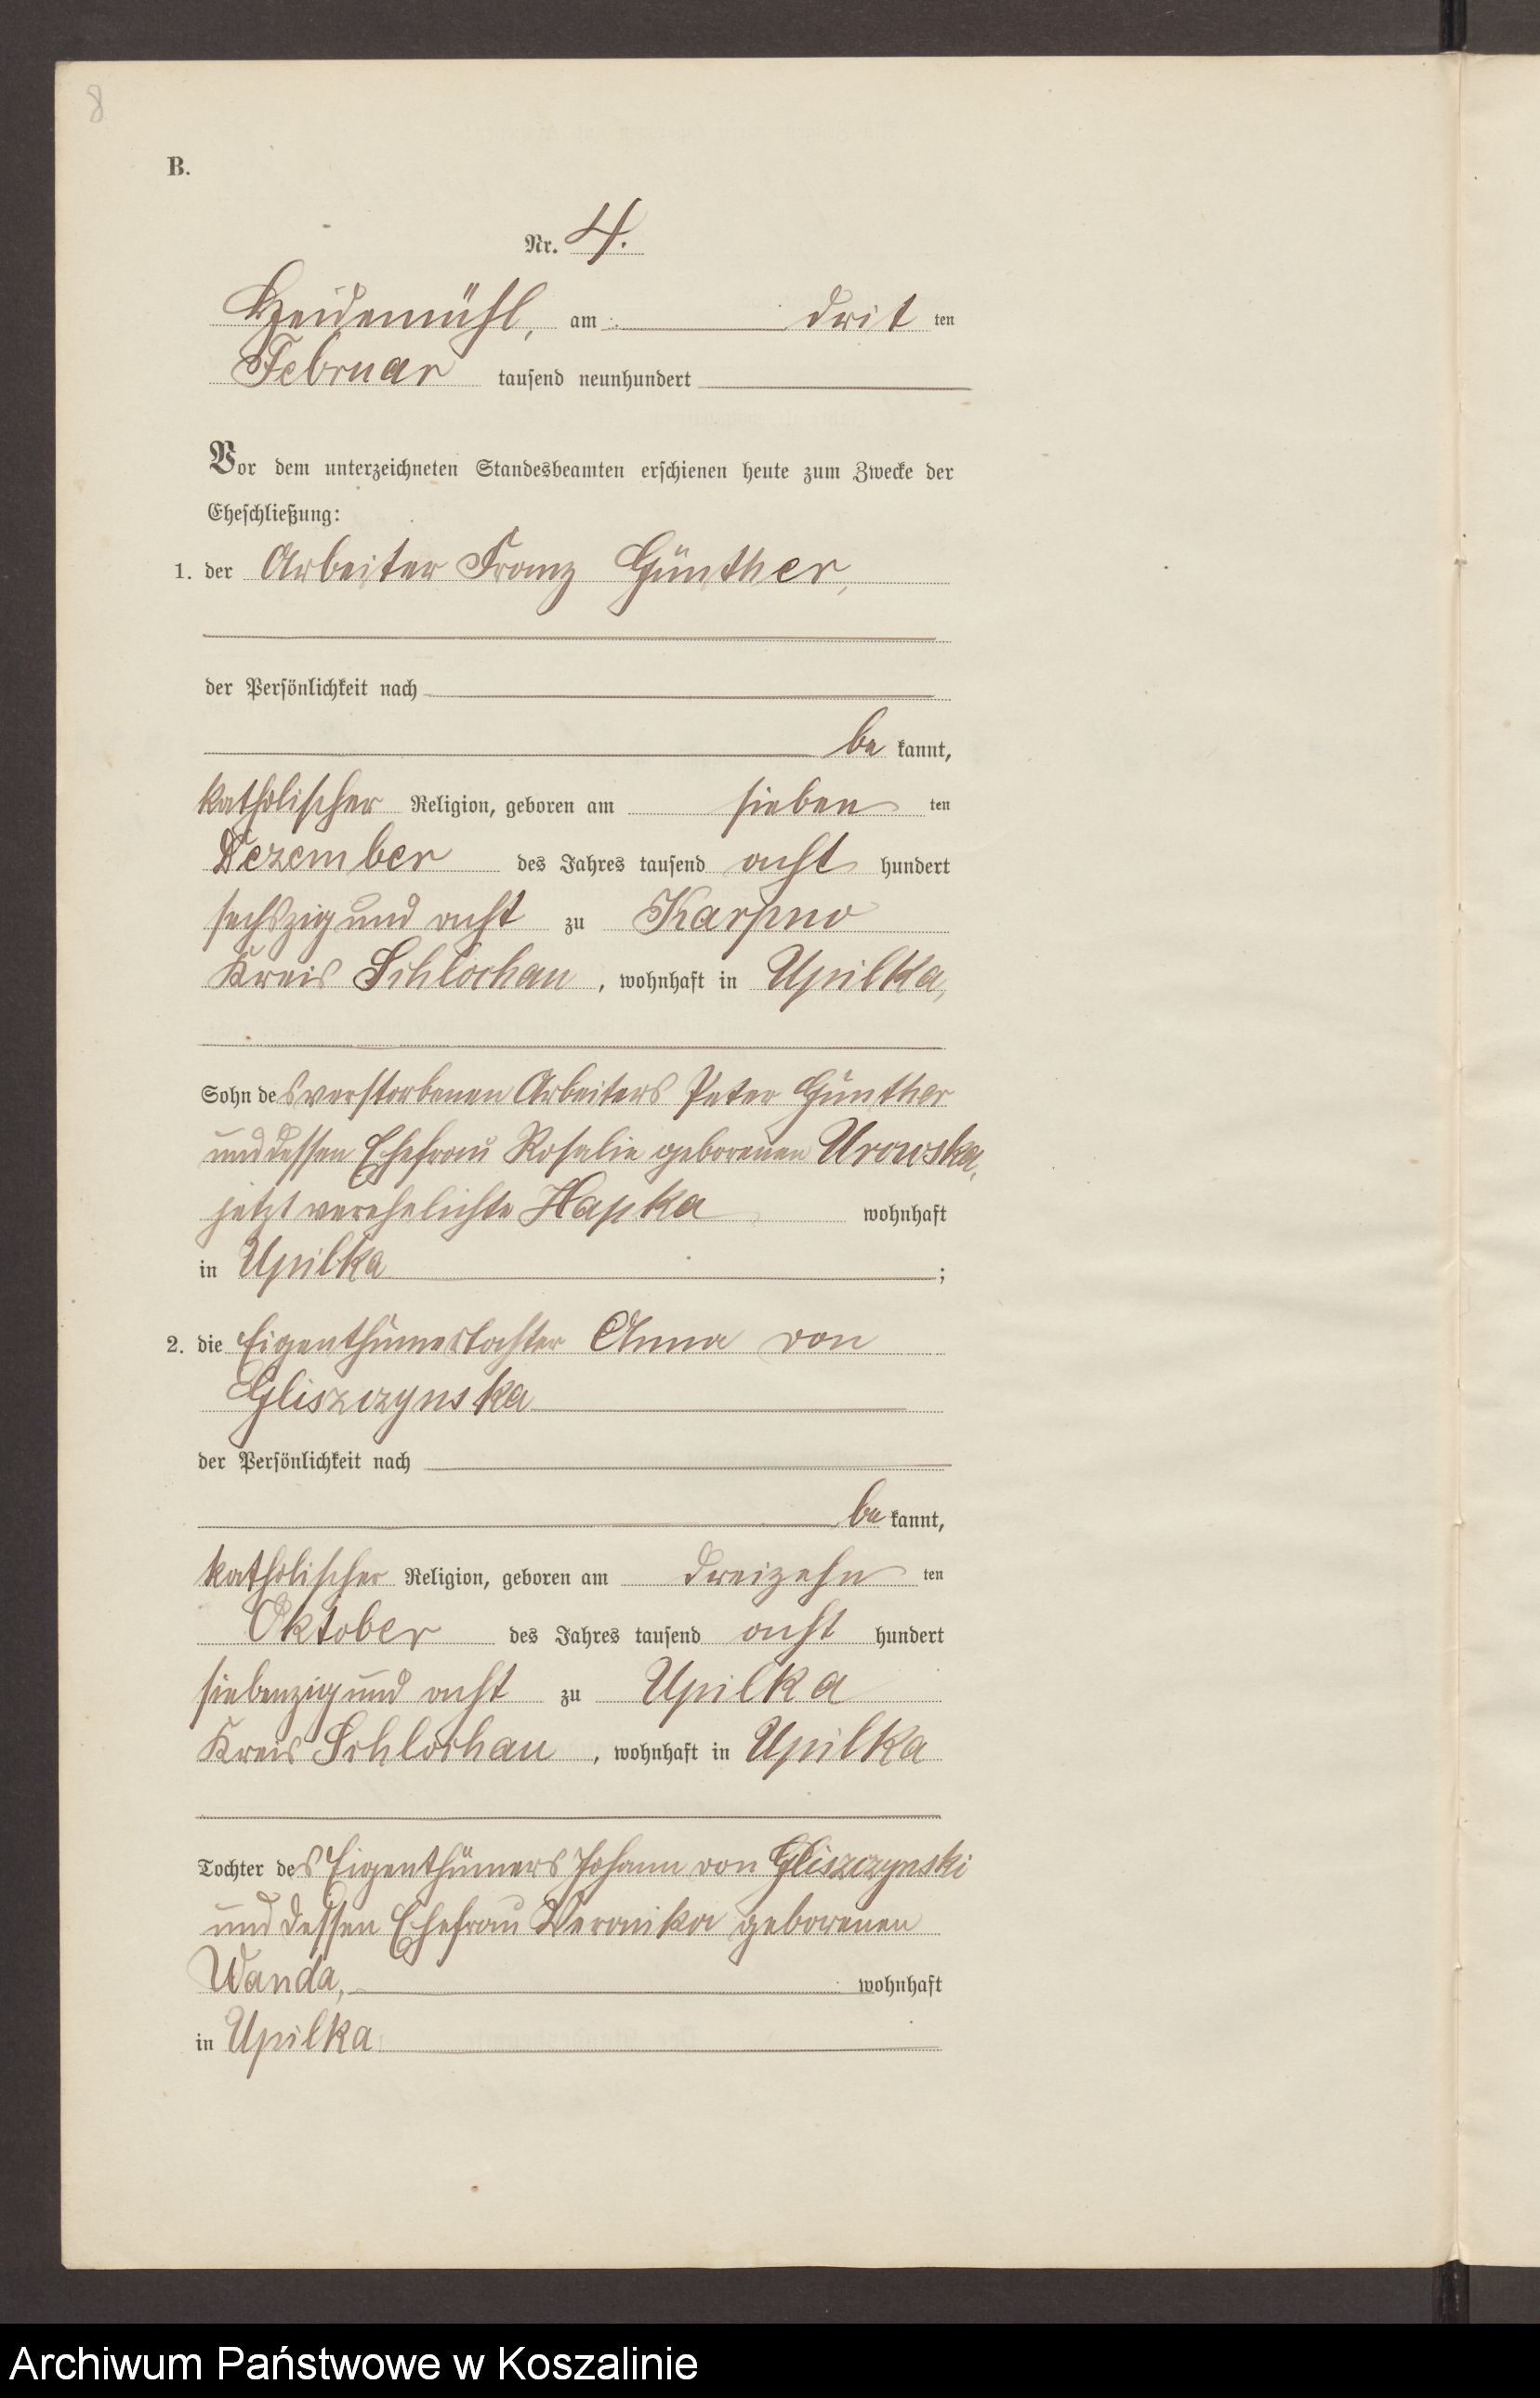 8
B.
Nr. 4.
Heidemühl, am drit ten
Februar tausend neunhundert
Vor dem unterzeichneten Standesbeamten erschienen heute zum Zwecke der
Eheschließung:
1. der Arbeiter Franz Günther,
der Persönlichkeit nach
be kannt,
katholischer Religion, geboren am sieben ten
Dezember des Jahres tausend acht hundert
sechszig und acht zu Karpno
Kreis Schlochau, wohnhaft in Upilka,
Sohn des verstorbenen Arbeiters Peter Günther
und dessen Ehefrau Rosalie geborenen Urowska,
jetzt verehelichte Hapka wohnhaft
in Upilka ;
2. die Eigenthümertochter Anna von
Gliszczynska
der Persönlichkeit nach
be kannt,
katholischer Religion, geboren am dreizehn ten
Oktober des Jahres tausend acht hundert
siebenzig und acht zu Upilka
Kreis Schlochau, wohnhaft in Upilka
Tochter des Eigenthümers Johann von Gliszczynski
und dessen Ehefrau Veronika geborenen
Wanda, wohnhaft
in Upilka
Archiwum Państwowe w Koszalinie